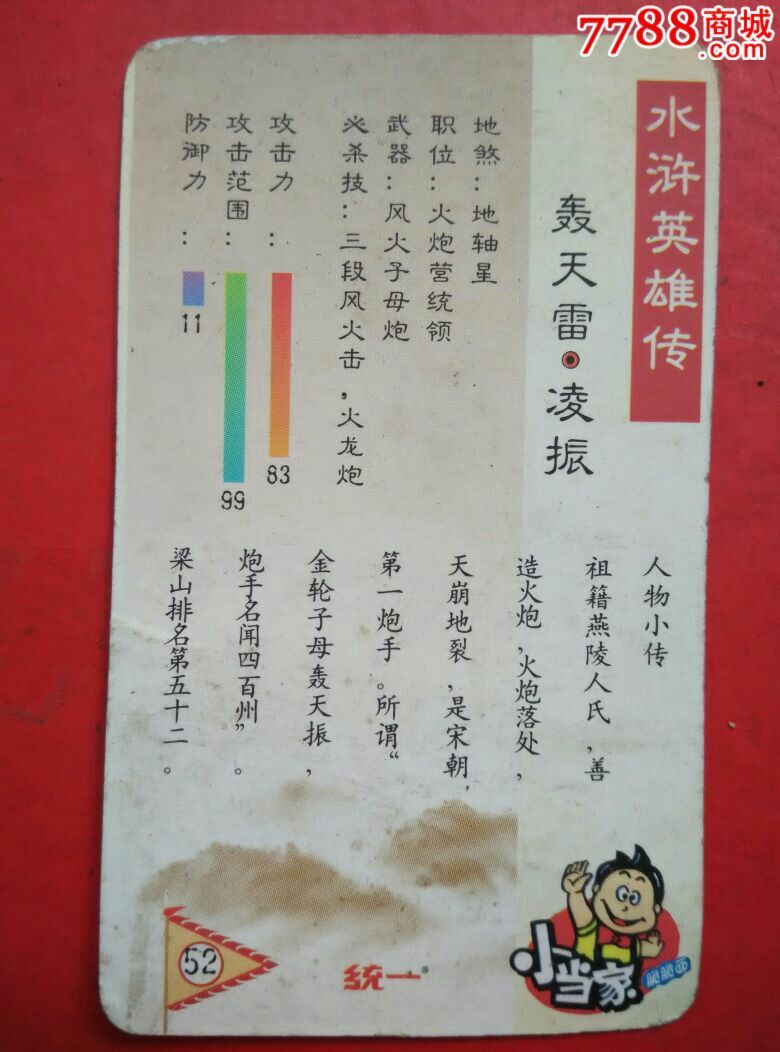 7788商城
.com
水浒英雄传
轰天雷·凌振
地煞：地轴星
职位：火炮营统领
武器：风火子母炮
必杀技：三段风火击，火龙炮
攻击力：
83
攻击范围：
99
防御力：
11
人物小传
祖籍燕陵人氏，善
造火炮，火炮落处，
天崩地裂，是宋朝
第一炮手。所谓“
金轮子母轰天振，
炮手名闻四百州”。
梁山排名第五十二。
52
统一®
小当家
脆脆面